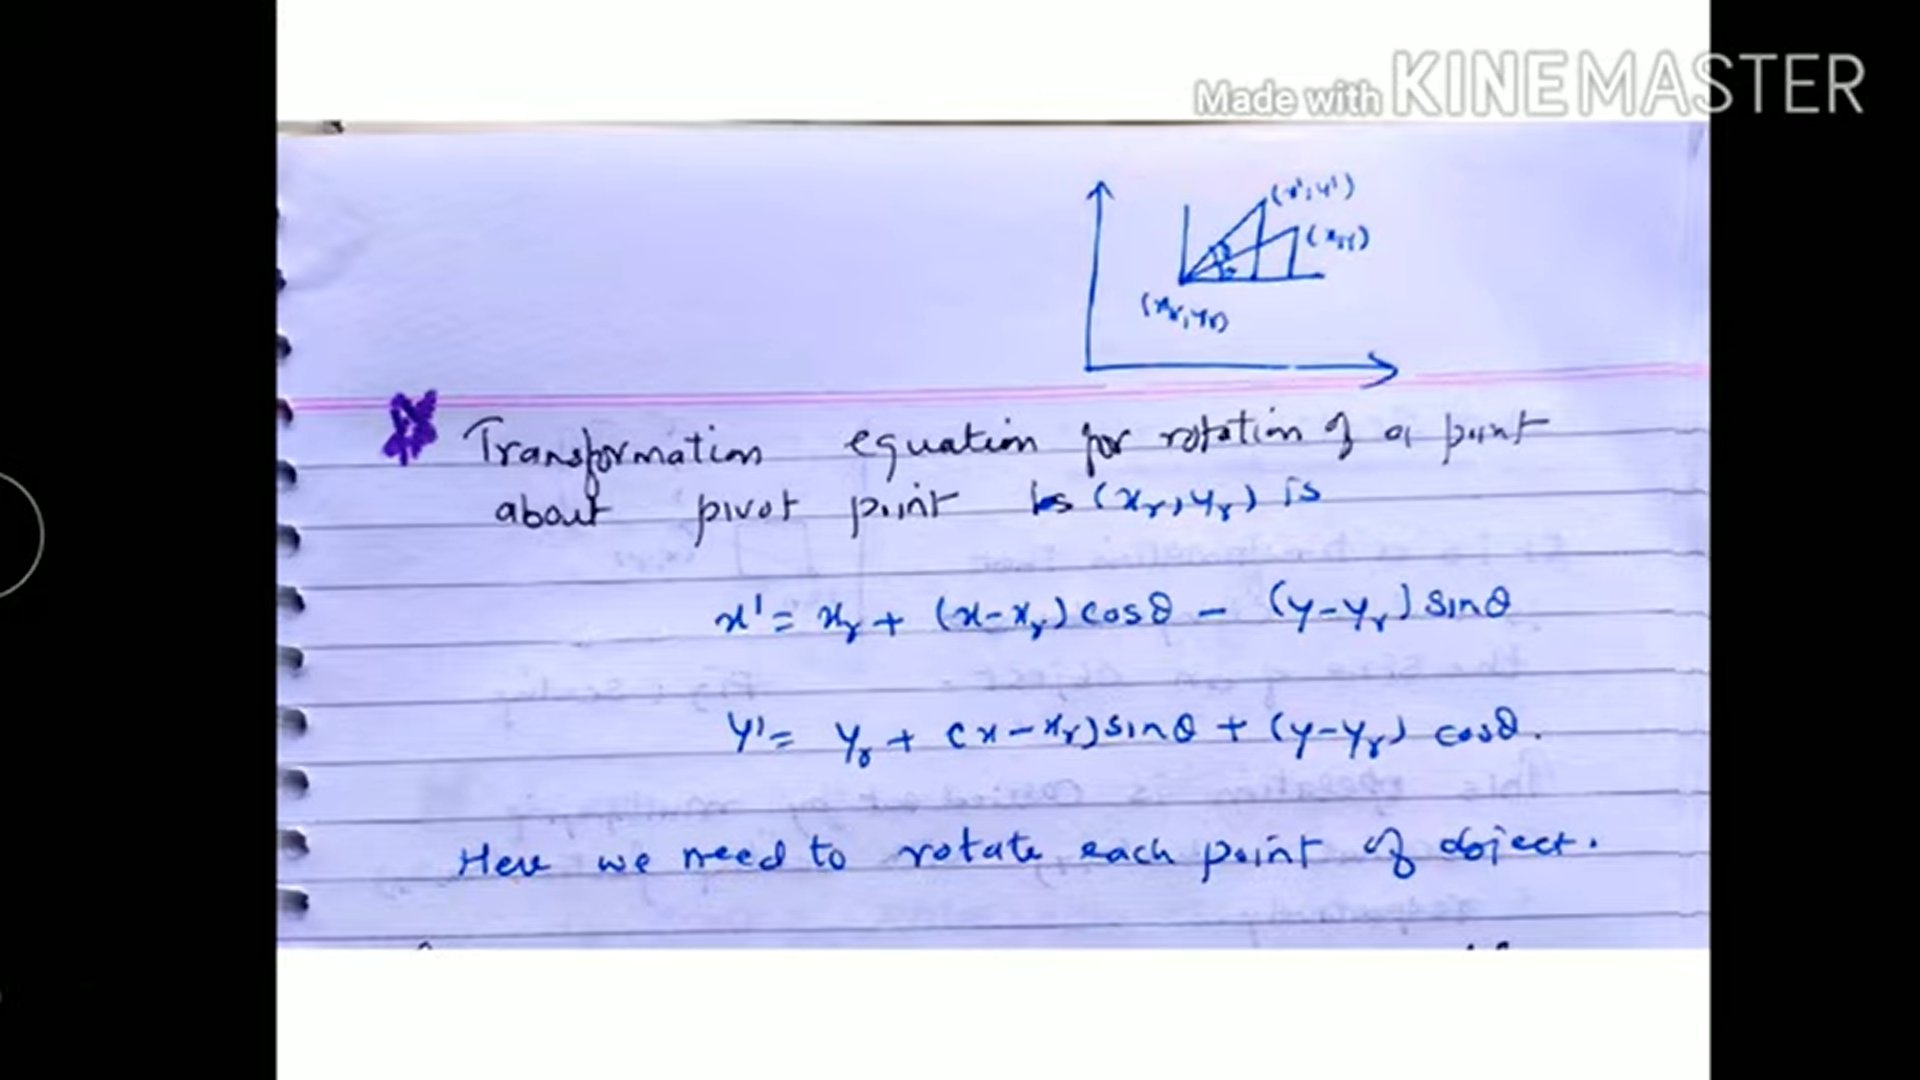 Made with KINEMASTER
(x', y')
(x, y)
(xr, yr)
Transformation equation for rotation of a point
about pivot point (xr, yr) is
x' = xr + (x-xr) cosθ - (y-yr) sinθ
y' = yr + (x-xr) sinθ + (y-yr) cosθ.
Here we need to rotate each point of object.